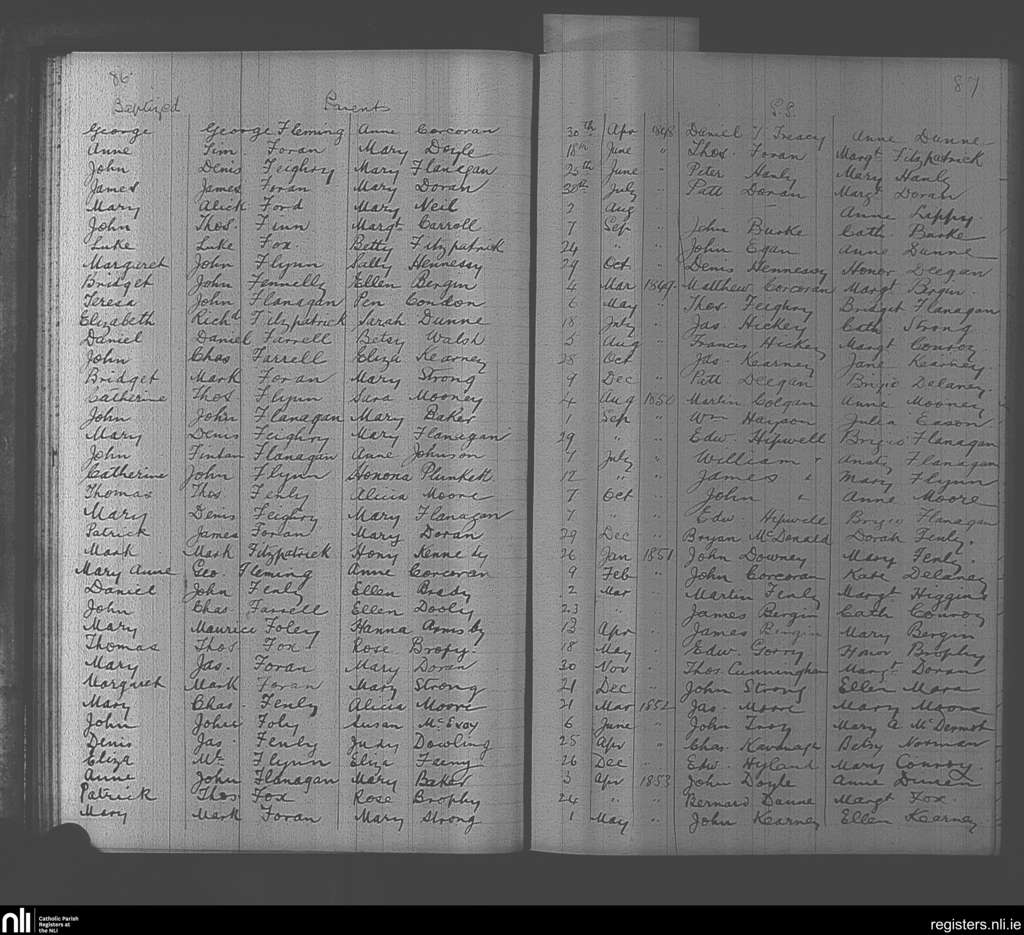 86
87
Baptized Parents
S.S.
George George Fleming Anne Corcoran 30th Apr 1848 Daniel Treacy Anne Dunne
Anne Tim Foran Mary Doyle 18th June " Thos. Foran Margt Fitzpatrick
John Denis Feighry Mary Flanagan 25th June " Peter Hanly Mary Hanly
James James Foran Mary Doran 30th July " Patt Doran Margt Doran
Mary Alick Ford Mary Neil 2 Aug — Anne Lappy
John Thos. Finn Margt Carroll 7 Sep " John Burke Cath. Burke
Luke Luke Fox Betty Fitzpatrick 24 " " John Egan Anne Dunne
Margaret John Flynn Sally Hennessy 29 Oct " Denis Hennessy Honor Deegan
Bridget John Fennelly Ellen Bergin 4 Mar 1849 Matthew Corcoran Margt Bergin
Teresa John Flanagan Pen Condon 6 May " Thos. Feighry Bridget Flanagan
Elizabeth Richd Fitzpatrick Sarah Dunne 18 July " Jas. Hickey Cath. Strong
Daniel Daniel Farrell Betsy Walsh 5 Aug " Francis Hickey Margt Conroy
John Chas Farrell Eliza Kearney 28 Oct " Jas. Kearney Jane Kearney
Bridget Mark Foran Mary Strong 9 Dec " Patt Deegan Brigid Delaney
Catherine Thos Flynn Sara Mooney 4 Aug 1850 Martin Colgan Anne Mooney
John John Flanagan Mary Baker 1 Sep " Wm Julia Eason
Mary Denis Feighry Mary Flanagan 29 " " Edw. Hipwell Brigid Flanagan
John Fintan Flanagan Anne Johnson 7 July " William " Flanagan
Catherine John Flynn Honora Plunkett 12 " " James " Mary Flynn
Thomas Thos. Fenly Alicia Moore 7 Oct John " Anne Moore
Mary Denis Feighry Mary Flanagan 7 " " Edw. Hipwell Brigid Flanagan
Patrick James Foran Mary Doran 29 Dec " Bryan McDonald Dorah Fenly.
Mark Mark Fitzpatrick Hony Kennedy 26 Jan 1851 John Downey Mary Fenly.
Mary Anne Geo. Fleming Anne Corcoran 9 Feb " John Corcoran Kate Delaney
Daniel John Fenly Ellen Brady 2 Mar " Martin Fenly Margt Higgins
John Chas. Farrell Ellen Dooly 23 " James Bergin Cath Conroy
Mary Maurice Foley Hanna Armsby 13 Apr " James Bergin Mary Bergin
Thomas Thos Fox Rose Brophy 18 May " Edw. Gorry Honor Brophy
Mary Jas. Foran Mary Doran 30 Nov " Thos. Cunningham Margt Doran
Margaret Mark Foran Mary Strong 21 Dec " John Strong Ellen Mara
Mary Chas. Fenly Alicia Moore 21 Mar 1852 Jas. Moore Mary Moore
John John Foly Susan McEvoy 6 June " John Troy Mary A McDermot
Denis Jas. Fenly Judy Dowling 25 Apr " Chas. Kavanagh Betsy Norman
Eliza Wm Flynn Eliza Feeny 26 Dec " Edw. Hyland Mary Conroy.
Anne John Flanagan Mary Baker 3 Apr 1853 John Doyle Anne
Patrick Thos Fox Rose Brophy 24 " " Bernard Dunne Margt Fox.
Mary Mark Foran Mary Strong 1 May " John Kearney Ellen Kearney
nli Catholic Parish Registers at the NLI
registers.nli.ie